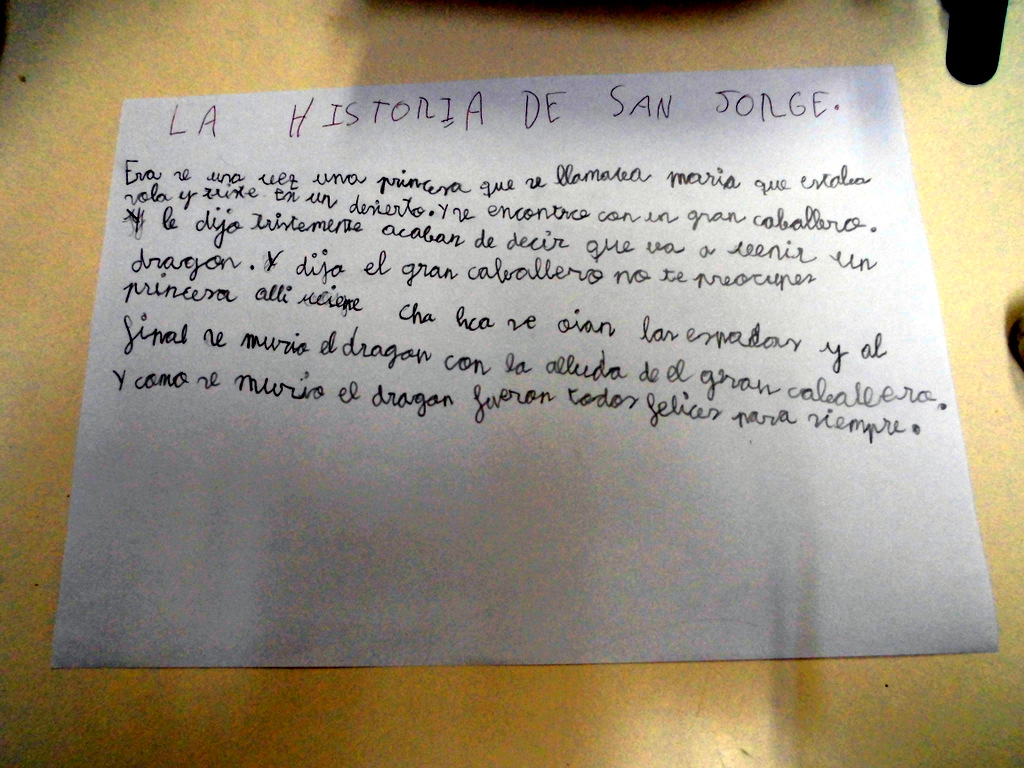 LA HISTORIA DE SAN JORGE.
Era se una vez una princesa que se llamava maria que estaba
sola y triste En un desierto. Y se encontro con un gran caballero.
Y le dijo tristemente acaban de decir que va a venir un
dragon. Y dijo el gran caballero no te preocupes
princesa alli viene Cha hca se oian las espadas y al
final se murio el dragon con la alluda de el gran caballero.
Y como se murio el dragon fueron todos felices para siempre.